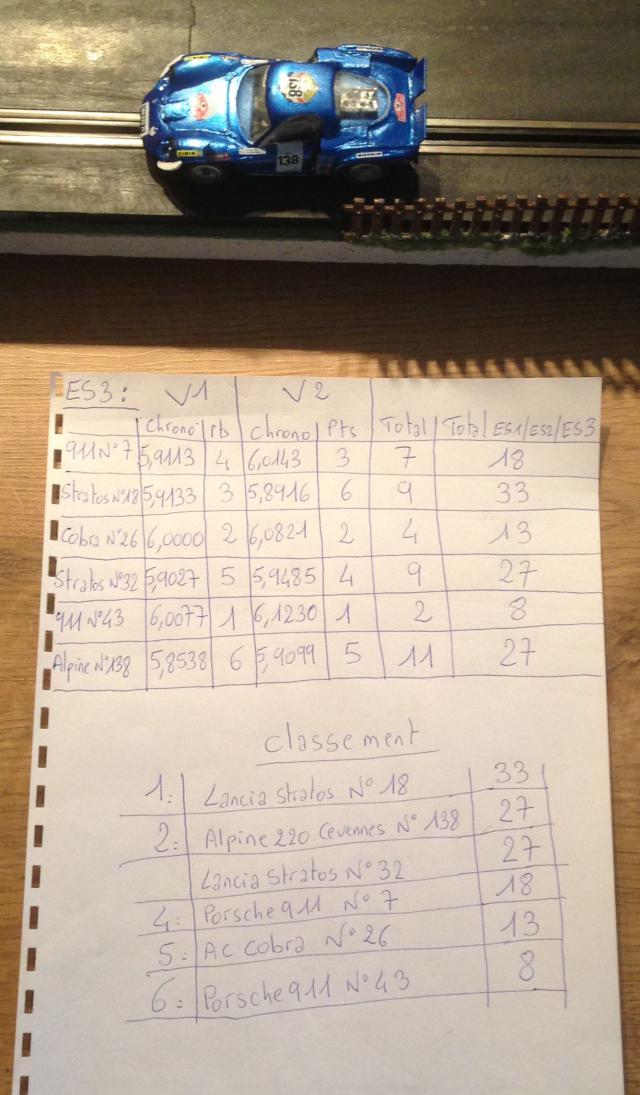 138
138
ES3: V1 V2
Chrono Pts Chrono Pts Total Total ES1/ES2/ES3
911 N°7 5,9113 4 6,0143 3 7 18
Stratos N°18 5,9133 3 5,8916 6 9 33
Cobra N°26 6,0000 2 6,0821 2 4 13
Stratos N°32 5,9027 5 5,9485 4 9 27
911 N°43 6,0077 1 6,1230 1 2 8
Alpine N°138 5,8538 6 5,9099 5 11 27
Classement
1: Lancia Stratos N° 18 33
2: Alpine 220 Cevennes N° 138 27
Lancia Stratos N° 32 27
4: Porsche 911 N° 7 18
5: Ac Cobra N° 26 13
6: Porsche 911 N° 43 8